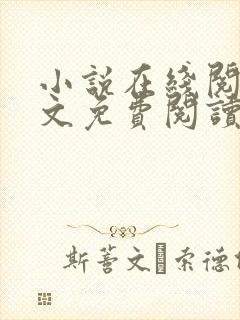 小說在綫閱
文免費閱讀
斯蓍文 索德